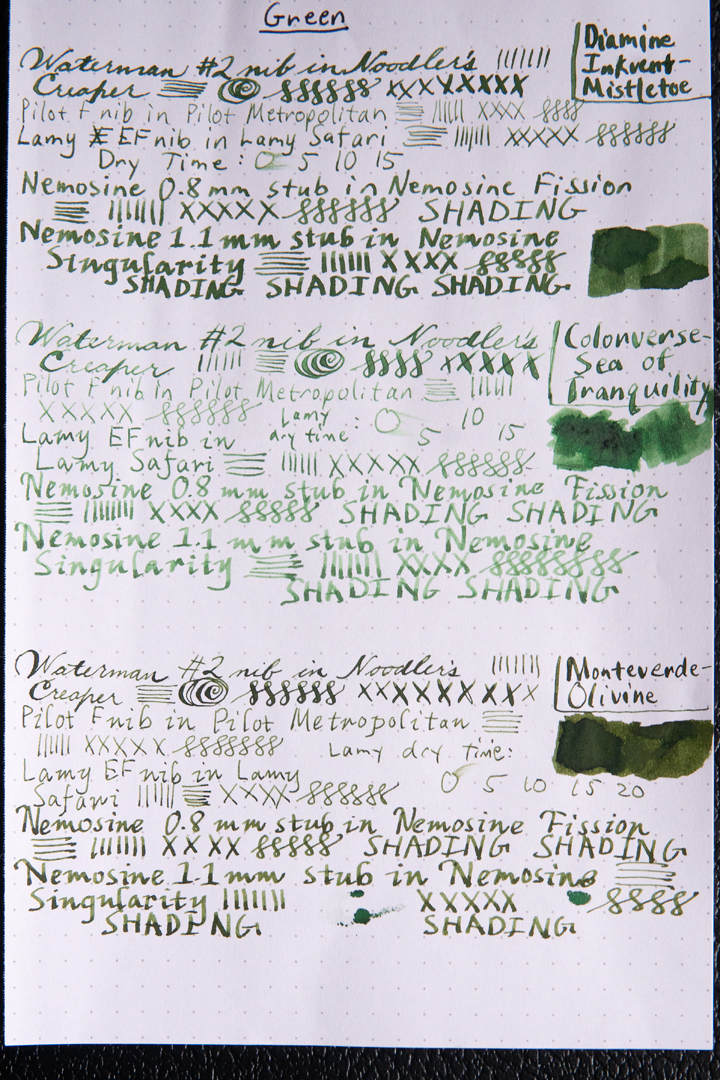 Green
Diamine
Inkvent-
Mistletoe
Waterman #2 nib in Noodler's
Creaper XXXXXXXX
Pilot F nib in Pilot Metropolitan XXXX
Lamy EF nib in Lamy Safari XXXXX
Dry Time: 0 5 10 15
Nemosine 0.8mm stub in Nemosine Fission
XXXXX SHADING
Nemosine 1.1mm stub in Nemosine
Singularity XXXX
SHADING SHADING SHADING
Colorverse-
Sea of
Tranquility
Waterman #2 nib in Noodler's
Creaper XXXXX
Pilot F nib in Pilot Metropolitan
XXXXX
Lamy dry time: 0 5 10 15
Lamy EF nib in
Lamy Safari XXXXX
Nemosine 0.8 mm stub in Nemosine Fission
XXXX SHADING SHADING
Nemosine 1.1 mm stub in Nemosine
Singularity XXXX
SHADING SHADING
Monteverde-
Olivine
Waterman #2 nib in Noodler's
Creaper XXXXXXXX
Pilot F nib in Pilot Metropolitan
XXXXX
Lamy dry time:
0 5 10 15 20
Lamy EF nib in Lamy
Safari XXXX
Nemosine 0.8 mm stub in Nemosine Fission
XXXX SHADING SHADING
Nemosine 1.1mm stub in Nemosine
Singularity XXXXX
SHADING SHADING